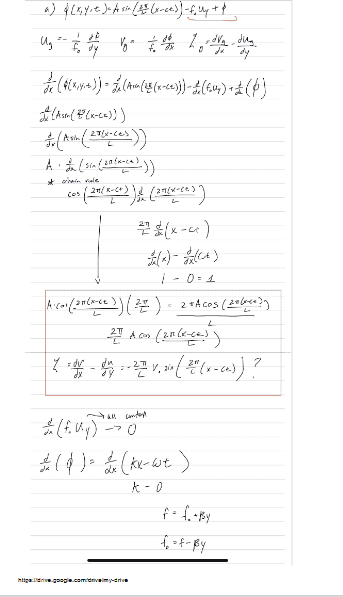 a) ϕ(x,y,t) = A sin(2π/L (x-ct)) - f₀uy + ϕ
ug = - 1/f₀ dϕ/dy  vg = 1/f₀ dϕ/dx  ζg = dvg/dx - dug/dy
d/dx (ϕ(x,y,t)) = d/dx (A sin(2π/L (x-ct))) - d/dx (f₀uy) + d/dx (ϕ)
d/dx (A sin(2π/L (x-ct)))
d/dx (A sin(2π(x-ct)/L))
A · d/dx (sin(2π(x-ct)/L))
* chain rule
cos(2π(x-ct)/L) d/dx (2π(x-ct)/L)
2π/L d/dx (x - ct)
d/dx (x) - d/dx (ct)
1 - 0 = 1
A · cos(2π(x-ct)/L) (2π/L) = 2πA cos(2π(x-ct)/L) / L
2π/L A cos(2π(x-ct)/L)
ζ = dv/dx - du/dy = - 2π/L V₀ sin(2π/L (x-ct)) ?
→ all
d/dx (f₀ uy) → 0
d/dx (ϕ) = d/dx (kx - ωt)
k - 0
f = f₀ + βy
f₀ = f - βy
https://drive.google.com/drive/my-drive